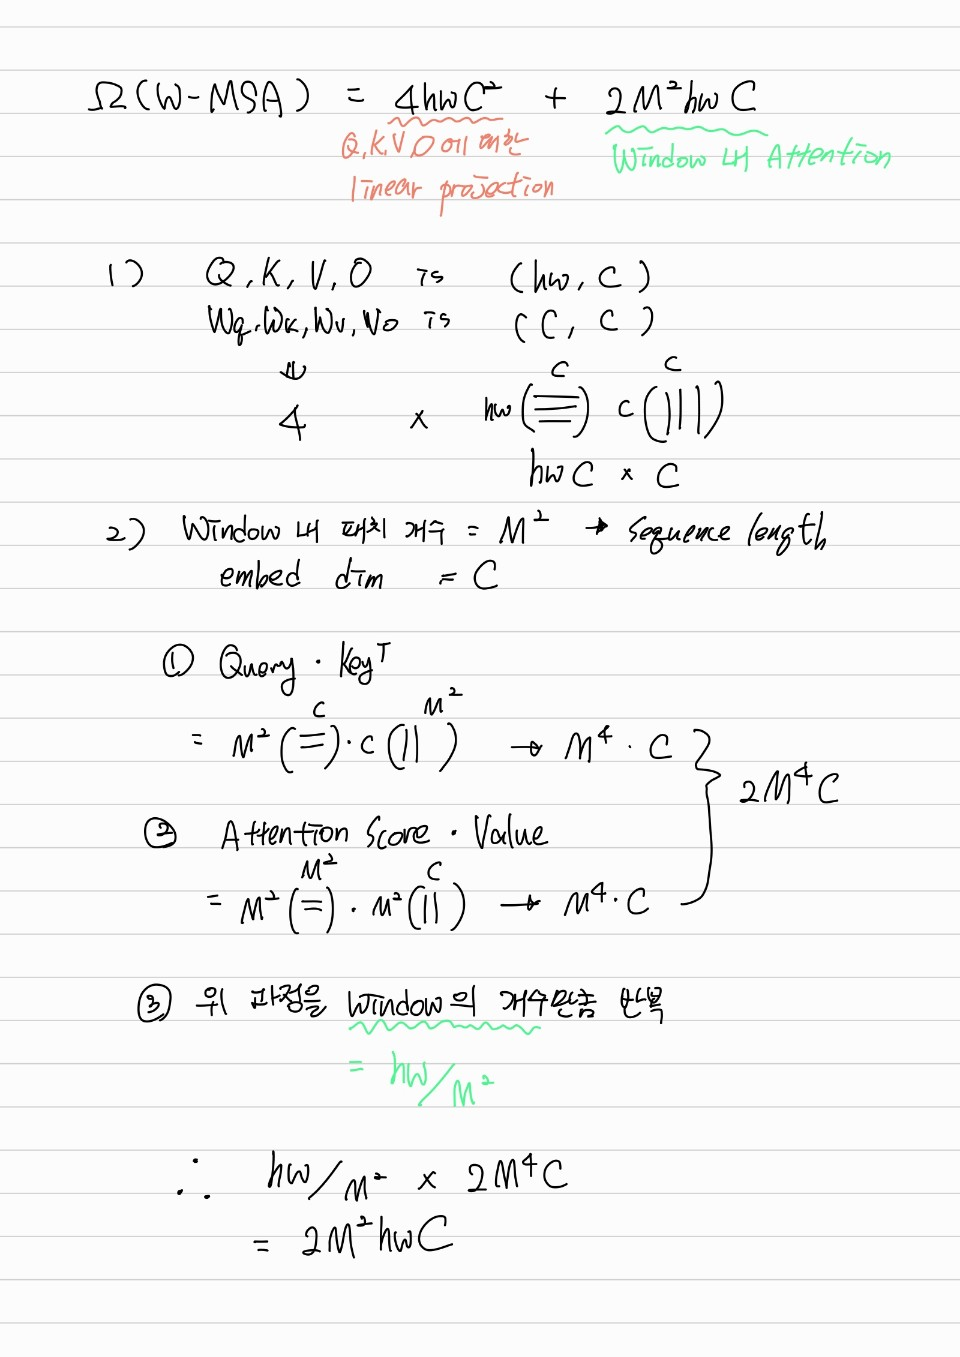 Ω(W-MSA) = 4hwC² + 2M²hwC
Q,K,V,O에 대한
linear projection
Window 내 Attention
1) Q, K, V, O is (hw, C)
Wq, Wk, Wv, Wo is (C, C)
↓
C C
4 × hw( ) C( )
hwC × C
2) Window 내 패치 개수 = M² → Sequence length
embed dim = C
① Query · Keyᵀ
C M²
= M²( ) · C( ) → M⁴ · C
2M⁴C
② Attention Score · Value
M² C
= M²( ) · M²( ) → M⁴ · C
③ 위 과정을 Window의 개수만큼 반복
= hw/M²
∴ hw/M² × 2M⁴C
= 2M²hwC